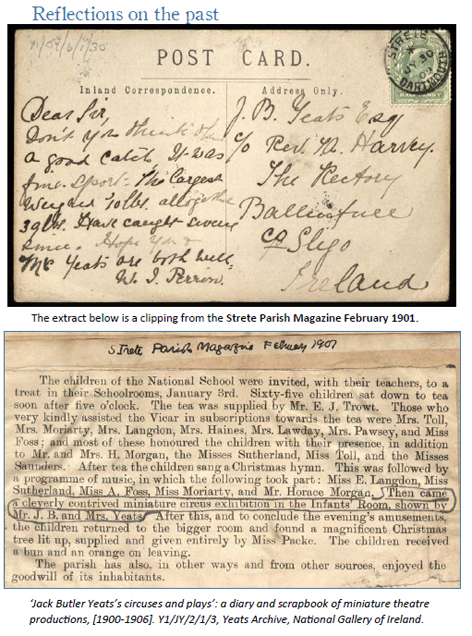 Reflections on the past
POST CARD.
Inland Correspondence.
Address Only.
STRETE
JY 30
DARTMOUTH
HALF PENNY
Dear Sir,
Don't you think this
a good catch. It was
fine sport. The largest
weighed 10 lbs. altogether
39 lbs. Have caught
since. Hope you &
Mrs Yeats are both well.
W. J. Perrin.
J. B. Yeats Esq
c/o Revd. Harvey.
The Rectory
Co Sligo
Ireland
The extract below is a clipping from the Strete Parish Magazine February 1901.
Strete Parish Magazine February 1901
The children of the National School were invited, with their teachers, to a
treat in their Schoolrooms, January 3rd. Sixty-five children sat down to tea
soon after five o'clock. The tea was supplied by Mr. E. J. Trowt. Those who
very kindly assisted the Vicar in subscriptions towards the tea were Mrs. Toll,
Mrs. Moriarty, Mrs. Langdon, Mrs. Haines, Mrs. Lawday, Mrs. Pawsey, and Miss
Foss; and most of these honoured the children with their presence, in addition
to Mr. and Mrs. H. Morgan, the Misses Sutherland, Miss Toll, and the Misses
Saunders. After tea the children sang a Christmas hymn. This was followed by
a programme of music, in which the following took part: Miss E. Langdon, Miss
Sutherland, Miss A. Foss, Miss Moriarty, and Mr. Horace Morgan. Then came
a cleverly contrived miniature circus exhibition in the Infants' Room, shown by
Mr. J. B. and Mrs. Yeats. After this, and to conclude the evening's amusements,
the children returned to the bigger room and found a magnificent Christmas
tree lit up, supplied and given entirely by Miss Packe. The children received
a bun and an orange on leaving.
The parish has also, in other ways and from other sources, enjoyed the
goodwill of its inhabitants.
'Jack Butler Yeats's circuses and plays': a diary and scrapbook of miniature theatre
productions, [1900-1906]. Y1/JY/2/1/3, Yeats Archive, National Gallery of Ireland.